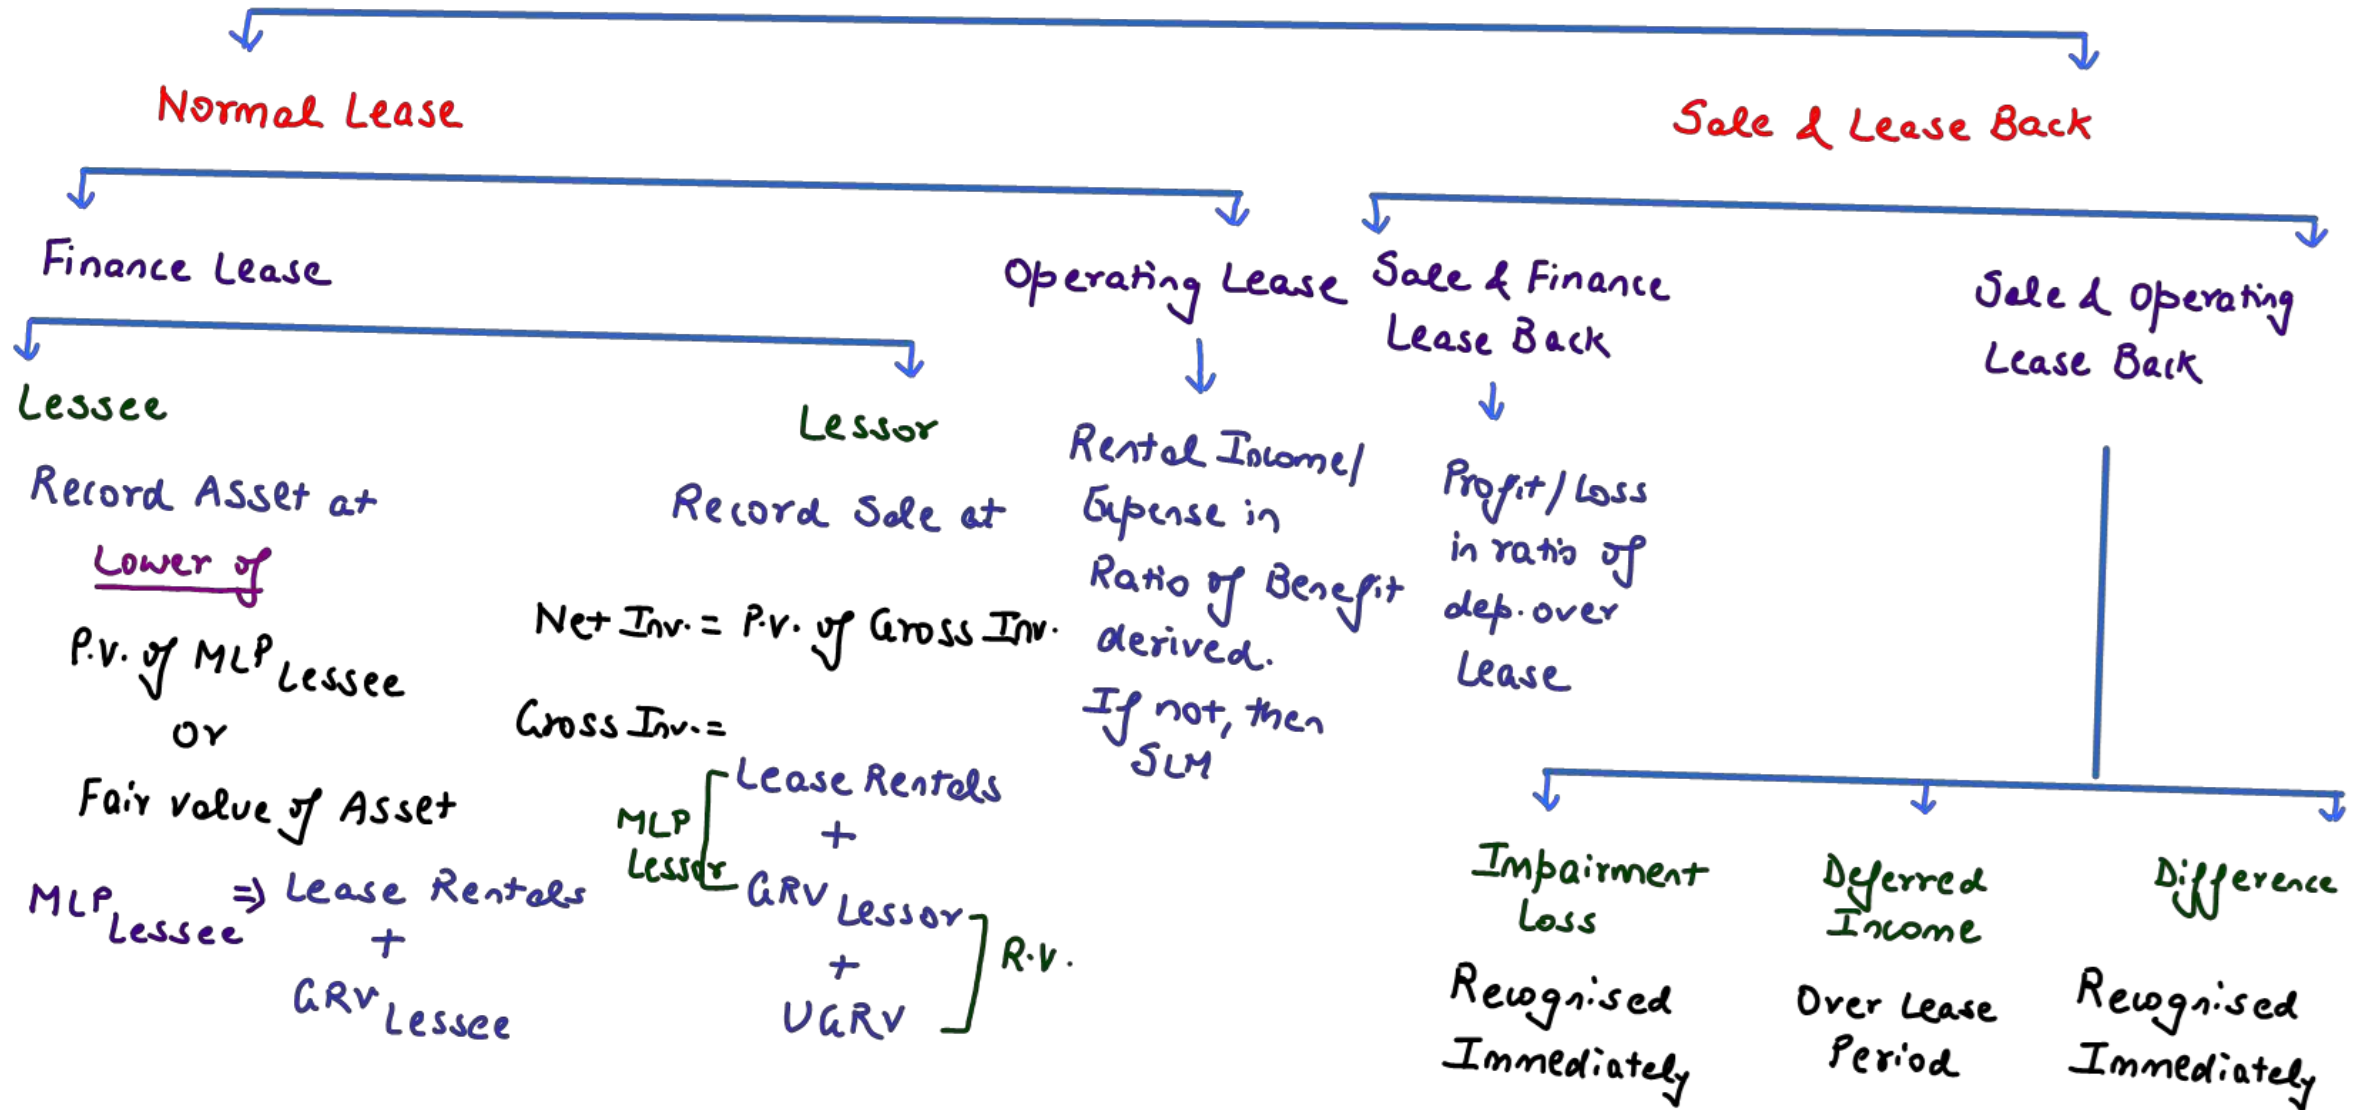 Normal Lease
Sale & Lease Back
Finance Lease
Operating Lease
Sale & Finance
Lease Back
Sale & Operating
Lease Back
Lessee
Record Asset at
Lower of
P.V. of MLP Lessee
or
Fair value of Asset
MLP Lessee => Lease Rentals
+
GRV Lessee
Lessor
Record Sale at
Net Inv. = P.V. of Gross Inv.
Gross Inv. =
Lease Rentals
+
GRV Lessor
+
UGRV
MLP
Lessor
R.V.
Rental Income/
Expense in
Ratio of Benefit
derived.
If not, then
SLM
Profit/Loss
in ratio of
dep. over
Lease
Impairment
Loss
Recognised
Immediately
Deferred
Income
Over Lease
Period
Difference
Recognised
Immediately